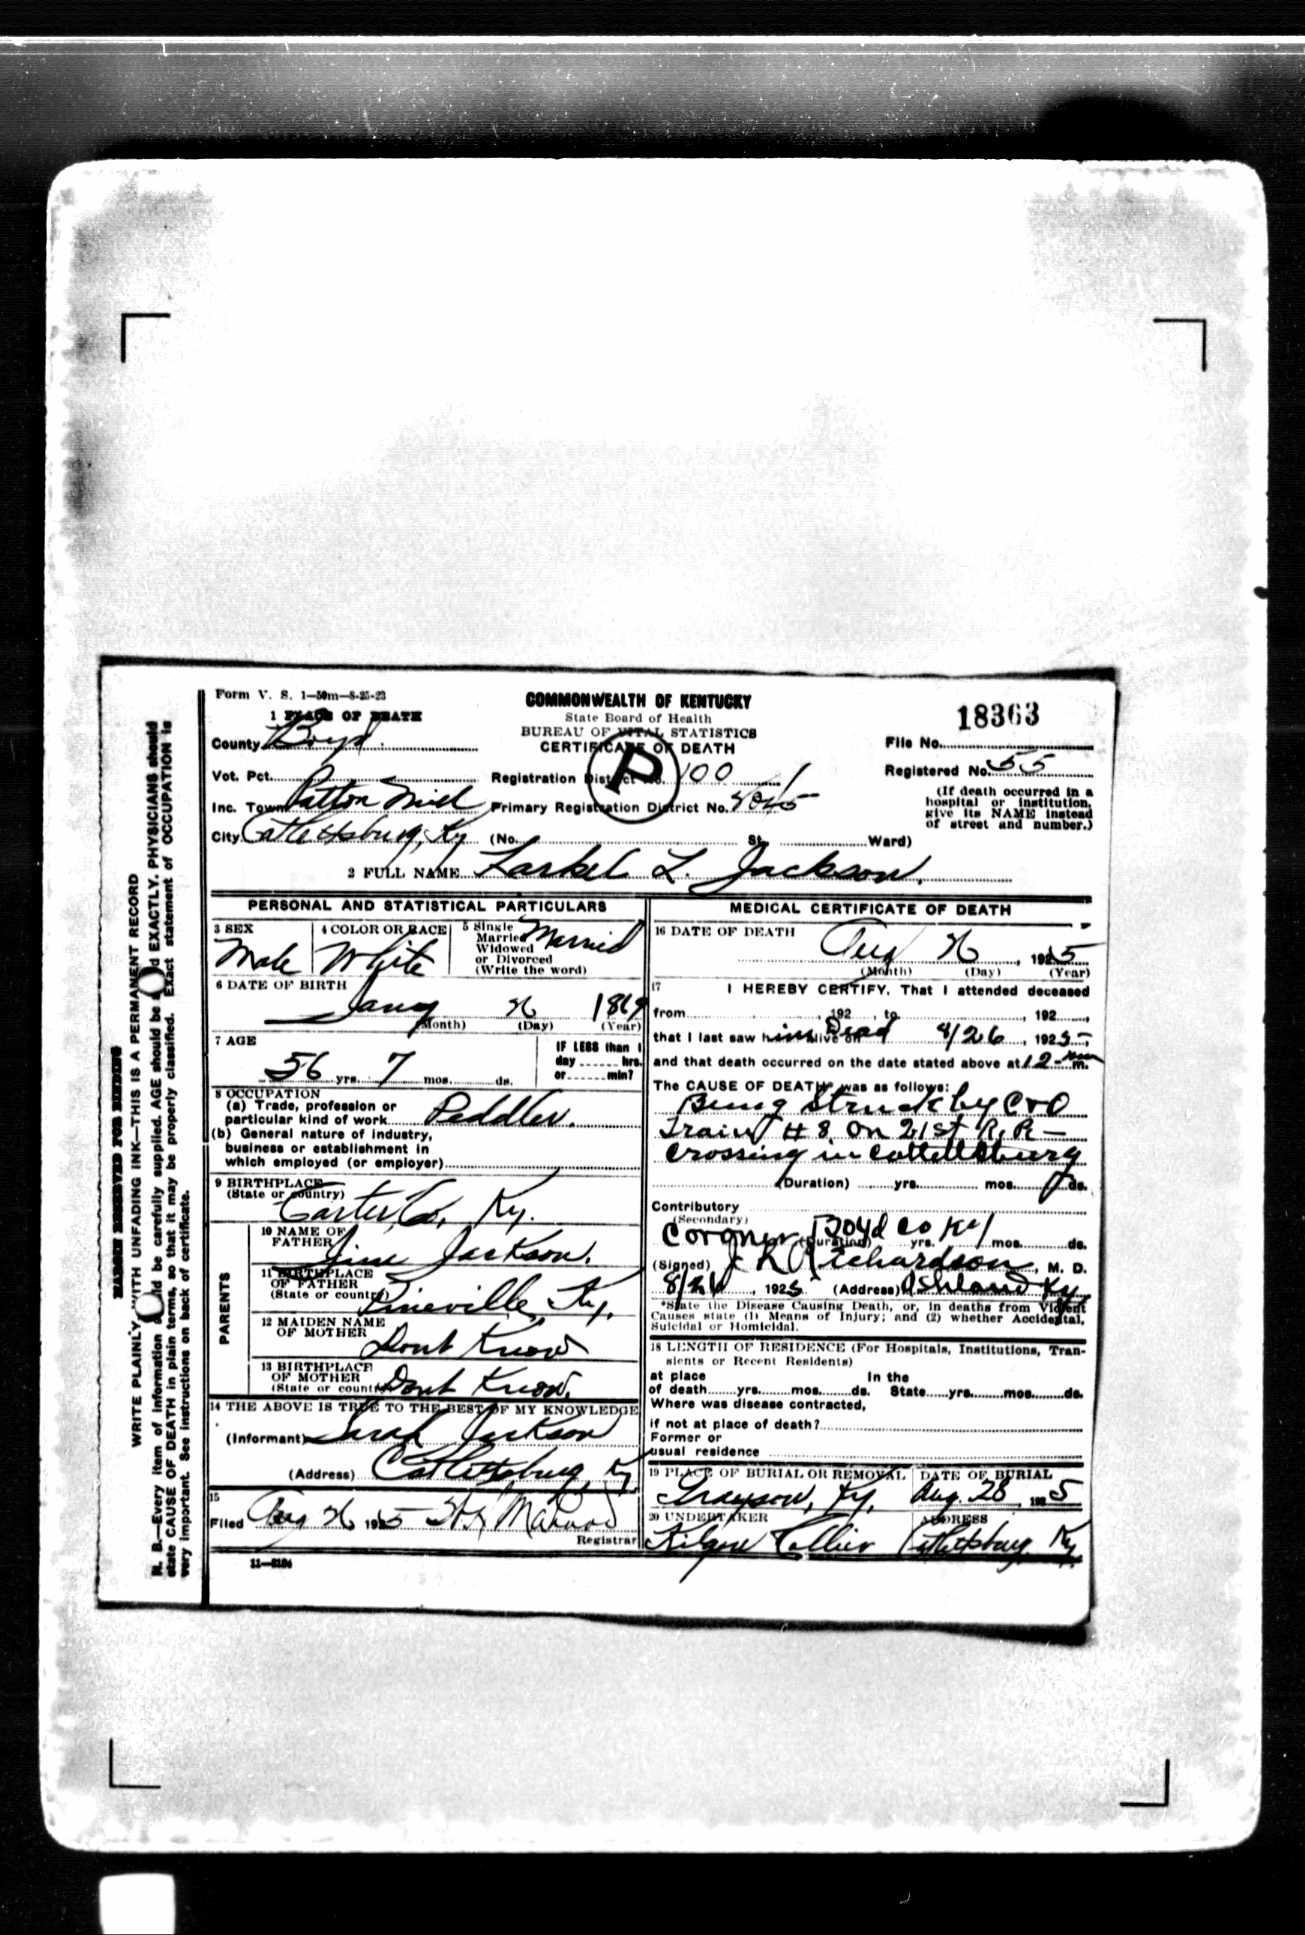 Form V. S. 1—50m—8-25-23
COMMONWEALTH OF KENTUCKY
State Board of Health
BUREAU OF VITAL STATISTICS
CERTIFICATE OF DEATH
P
18363
File No.
Registered No. 55
(If death occurred in a
hospital or institution,
give its NAME instead
of street and number.)
1 PLACE OF DEATH
County Boyd.
Vot. Pct.
Registration District No. 100
Inc. Town Patton Mill
Primary Registration District No.
City Catlettsburg, Ky (No. St. Ward)
2 FULL NAME L. Jackson.
PERSONAL AND STATISTICAL PARTICULARS
3 SEX
Male
4 COLOR OR RACE
White
5 Single
Married
Widowed
or Divorced
(Write the word)
Married
6 DATE OF BIRTH
Jany 26 1869
(Month) (Day) (Year)
7 AGE
56 yrs. 7 mos. ds.
IF LESS than 1
day hrs.
or min?
8 OCCUPATION
(a) Trade, profession or
particular kind of work Peddler.
(b) General nature of industry,
business or establishment in
which employed (or employer)
9 BIRTHPLACE
(State or country)
Carter Co, Ky.
PARENTS
10 NAME OF
FATHER Jackson.
11 BIRTHPLACE
OF FATHER
(State or country) Pineville, Ky.
12 MAIDEN NAME
OF MOTHER
Dont Know
13 BIRTHPLACE
OF MOTHER
(State or country) Dont Know.
14 THE ABOVE IS TRUE TO THE BEST OF MY KNOWLEDGE
(Informant) Sarah Jackson
(Address) Catlettsburg, Ky
15
Filed Aug 26 1925
Registrar
11—3184
MEDICAL CERTIFICATE OF DEATH
16 DATE OF DEATH
Aug 26, 1925
(Month) (Day) (Year)
17
I HEREBY CERTIFY, That I attended deceased
from , 192 , to , 192 ,
that I last saw him Dead alive on 8/26, 1925,
and that death occurred on the date stated above at 12 m.
The CAUSE OF DEATH* was as follows:
Being Struck by C&O
Train # 8 on 21st R.R—
Crossing in Catlettsburg
(Duration) yrs. mos. ds.
Contributory
(Secondary)
Coroner Boyd Co Ky
(Duration) yrs. mos. ds.
(Signed) J K Richardson, M. D.
8/26, 1925 (Address) Ashland Ky
*State the Disease Causing Death, or, in deaths from Violent
Causes state (1) Means of Injury; and (2) whether Accidental,
Suicidal or Homicidal.
18 LENGTH OF RESIDENCE (For Hospitals, Institutions, Tran-
sients or Recent Residents)
at place In the
of death yrs. mos. ds. State yrs. mos. ds.
Where was disease contracted,
if not at place of death?
Former or
usual residence
19 PLACE OF BURIAL OR REMOVAL
Grayson, Ky.
DATE OF BURIAL
Aug. 28, 1925
20 UNDERTAKER
Kilgore Collier
ADDRESS
Catlettsburg, Ky.
MARGIN RESERVED FOR BINDING
WRITE PLAINLY WITH UNFADING INK—THIS IS A PERMANENT RECORD
N. B.—Every item of information should be carefully supplied. AGE should be stated EXACTLY. PHYSICIANS should
state CAUSE OF DEATH in plain terms, so that it may be properly classified. Exact statement of OCCUPATION is
very important. See instructions on back of certificate.